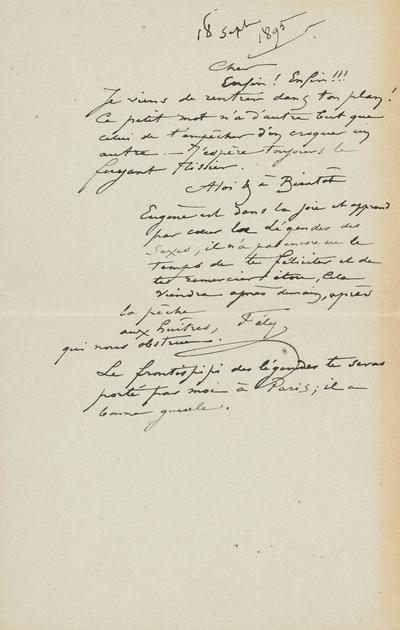 18 Sept 1895.
Cher
Enfin! Enfin!!!
Je viens de rentrer dans ton plan!
Ce petit mot n'a d'autre but que
celui de t'empêcher d'en croquer un
autre. — J'espère toujours le
fuyant Tissier.
à Bientôt
Eugène est dans la joie et apprend
par cœur les Légendes des
Sexes, il n'a pas encore eu le
temps de te féliciter et de
te remercier itou, cela
viendra après demain, après
la pêche
aux huîtres, Fély
qui nous obstrue.
Le frontispipi des légendes te seras
porté par moi à Paris; il a
bonne gueule.